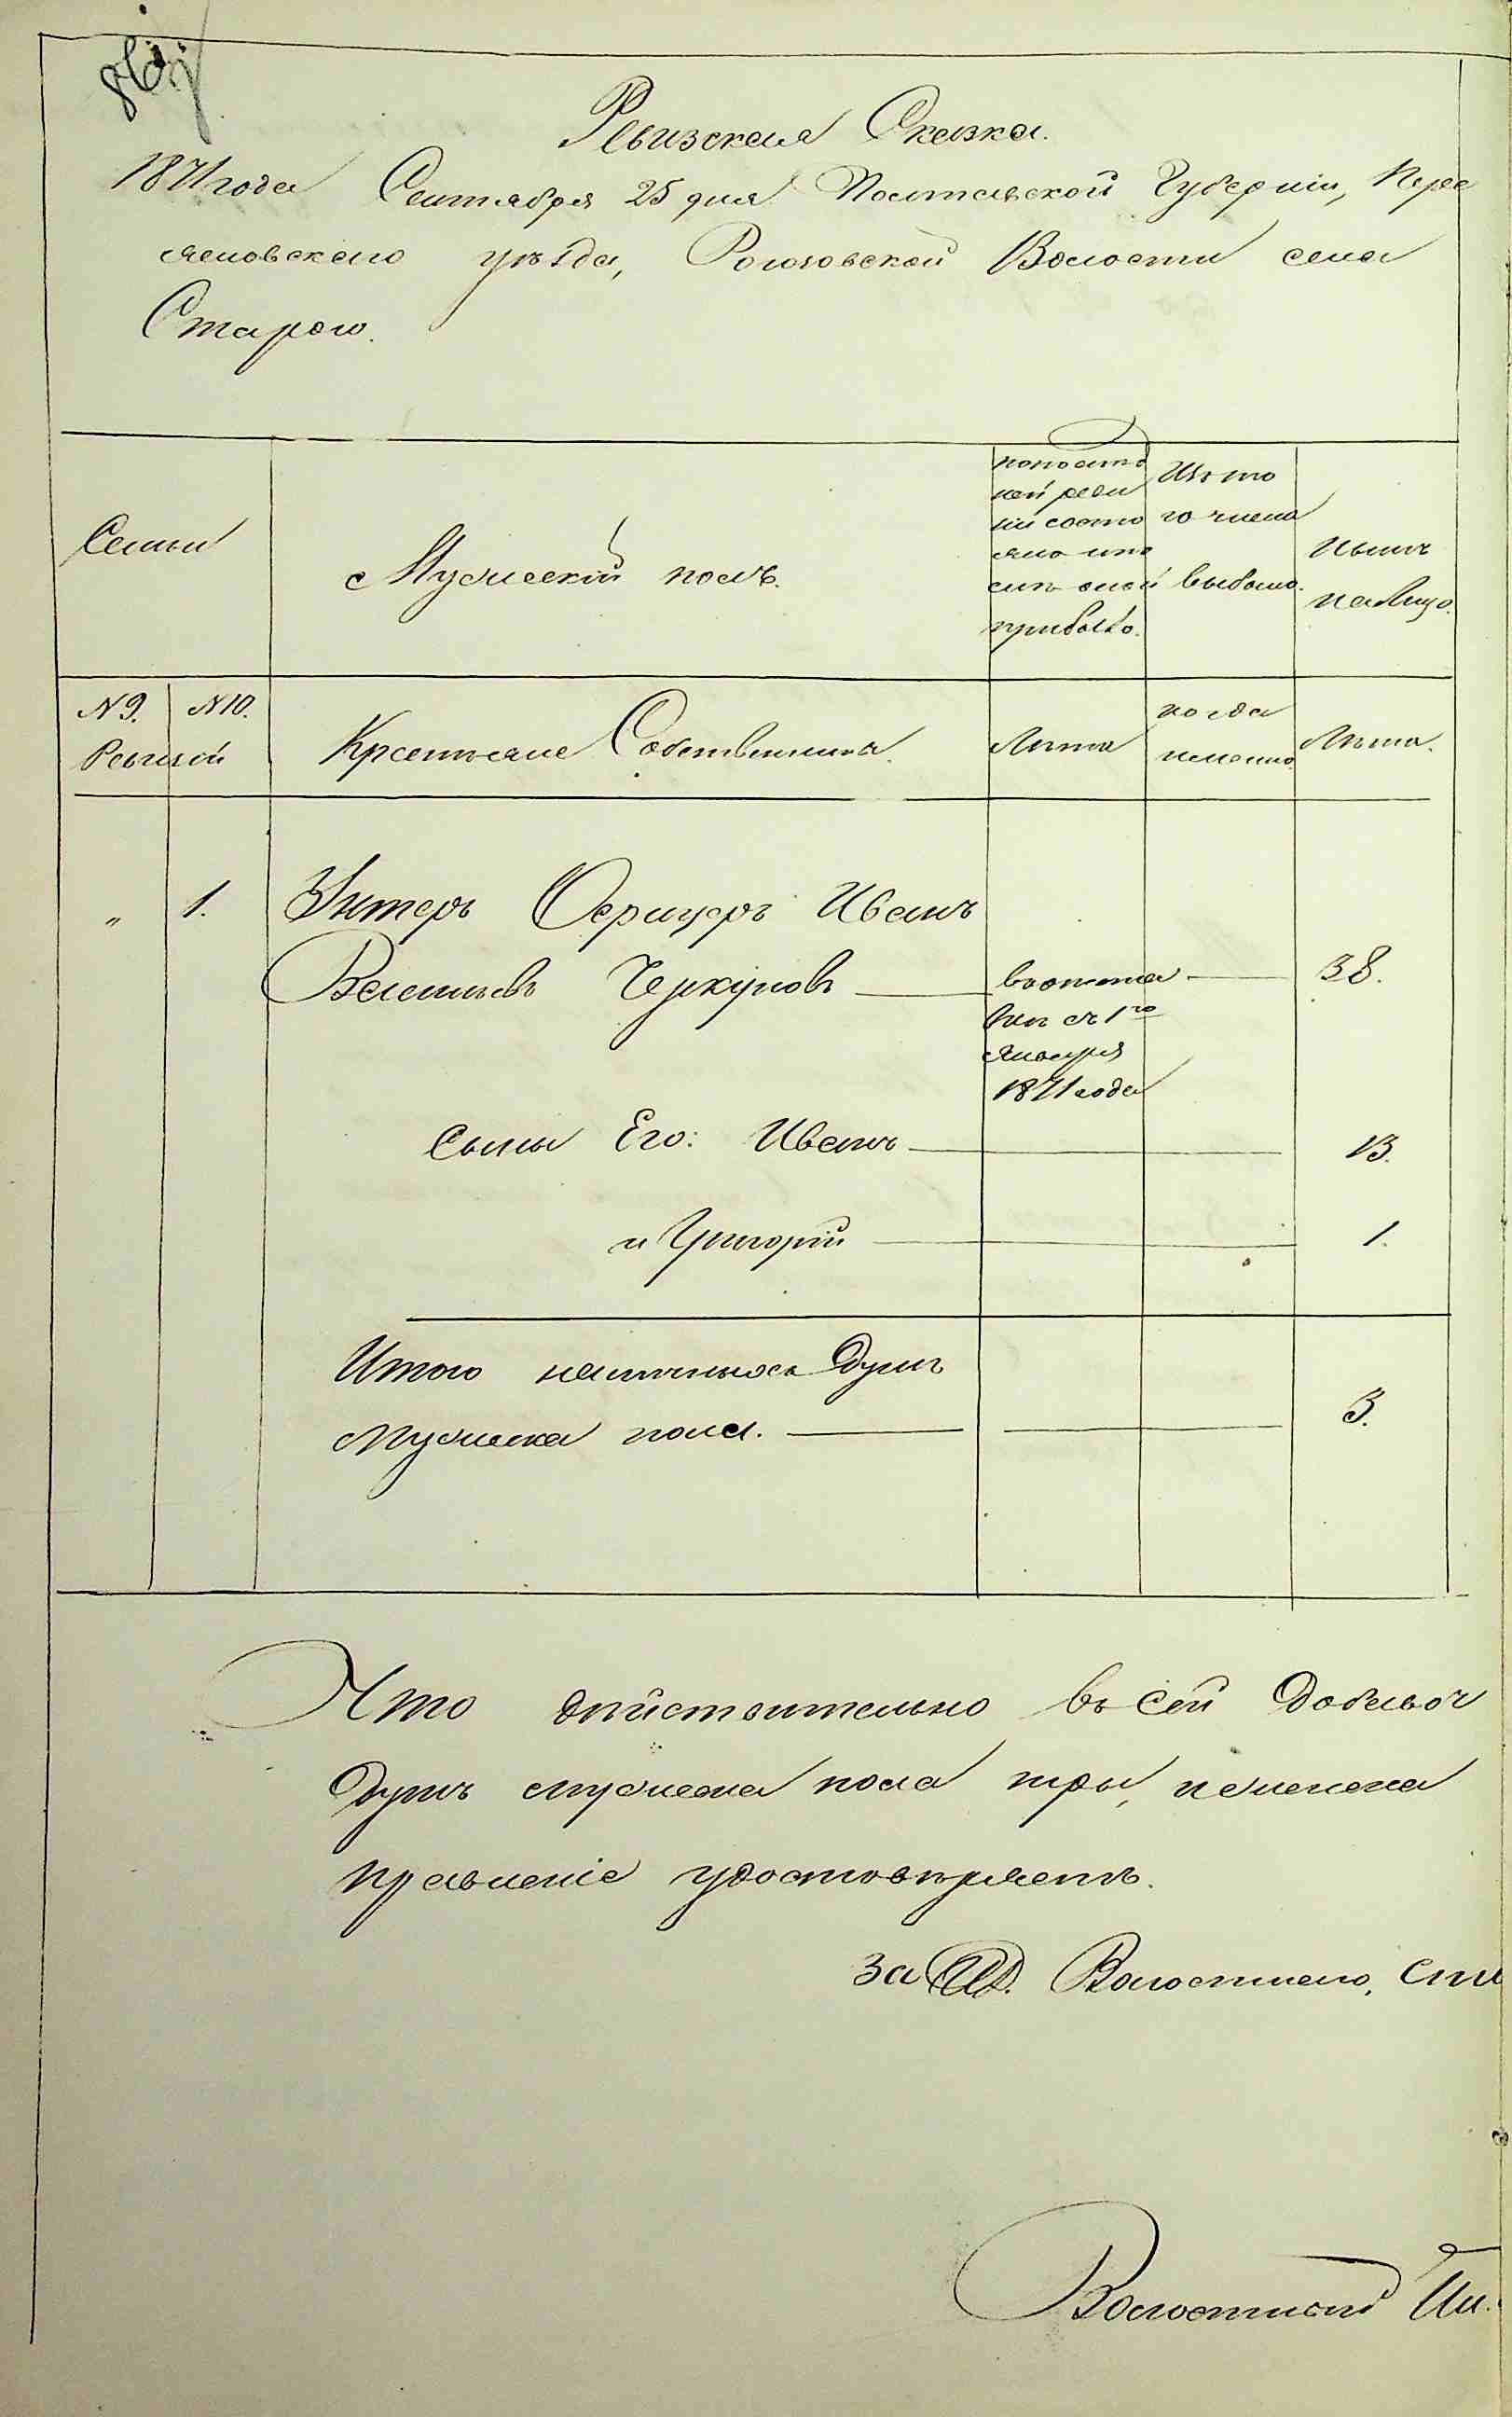 Ревизская Сказка.
1871 года Сентября 25 дня Полтавской Губерніи, Пере
яславскаго уѣзда, Рогозовской Волости села
Стараго.
Семьи
Мужескій полъ.
по послѣд
ней реви
зіи состо
яло или
послѣ оной
прибыло.
Изъ то
го числа
выбыло.
Нынѣ
на лицо.
N 9.
N 10.
Ревизій
Крестьяне Собственники.
Лѣта
когда
именно.
Лѣта.
" 1. Унтеръ Оерицеръ Иванъ
Васильевъ Черкуновъ
въ отста
вкѣ съ 1го
Января
1871 года
38.
Сыны Его: Иванъ 13.
и Григорій 1.
Итого наличныхъ Душъ
мужеска пола. 3.
Что дѣйствительно въ сей Добавоч
Душъ мужеска пола три,
правленіе удостовѣряетъ.
За Волостнаго, Ста
Волостной Пи.